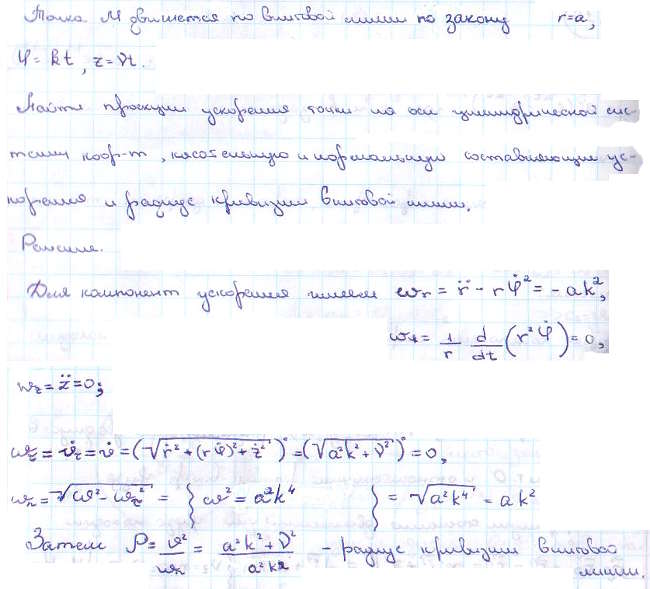 Точка M движется по винтовой линии по закону r=a,
φ=kt, z=νt.
Найти проекции ускорения точки на оси цилиндрической сис-
темы коор-т, касательную и нормальную составляющии ус-
корения и радиус кривизны винтовой линии.
Решение.
Для компонент ускорения имеем w_r = r̈ - rφ̇² = -ak²,
w_φ = 1/r d/dt (r²φ̇) = 0,
w_z = z̈ = 0;
w_τ = v̇_τ = v̇ = (√(ṙ² + (rφ̇)² + ż²))˙ = (√(a²k² + ν²))˙ = 0,
w_n = √(w² - w_τ²) = { w² = a²k⁴ } = √(a²k⁴) = ak²
Затем ρ = v²/w_n = (a²k² + ν²)/(a²k²) - радиус кривизны винтовой
линии.